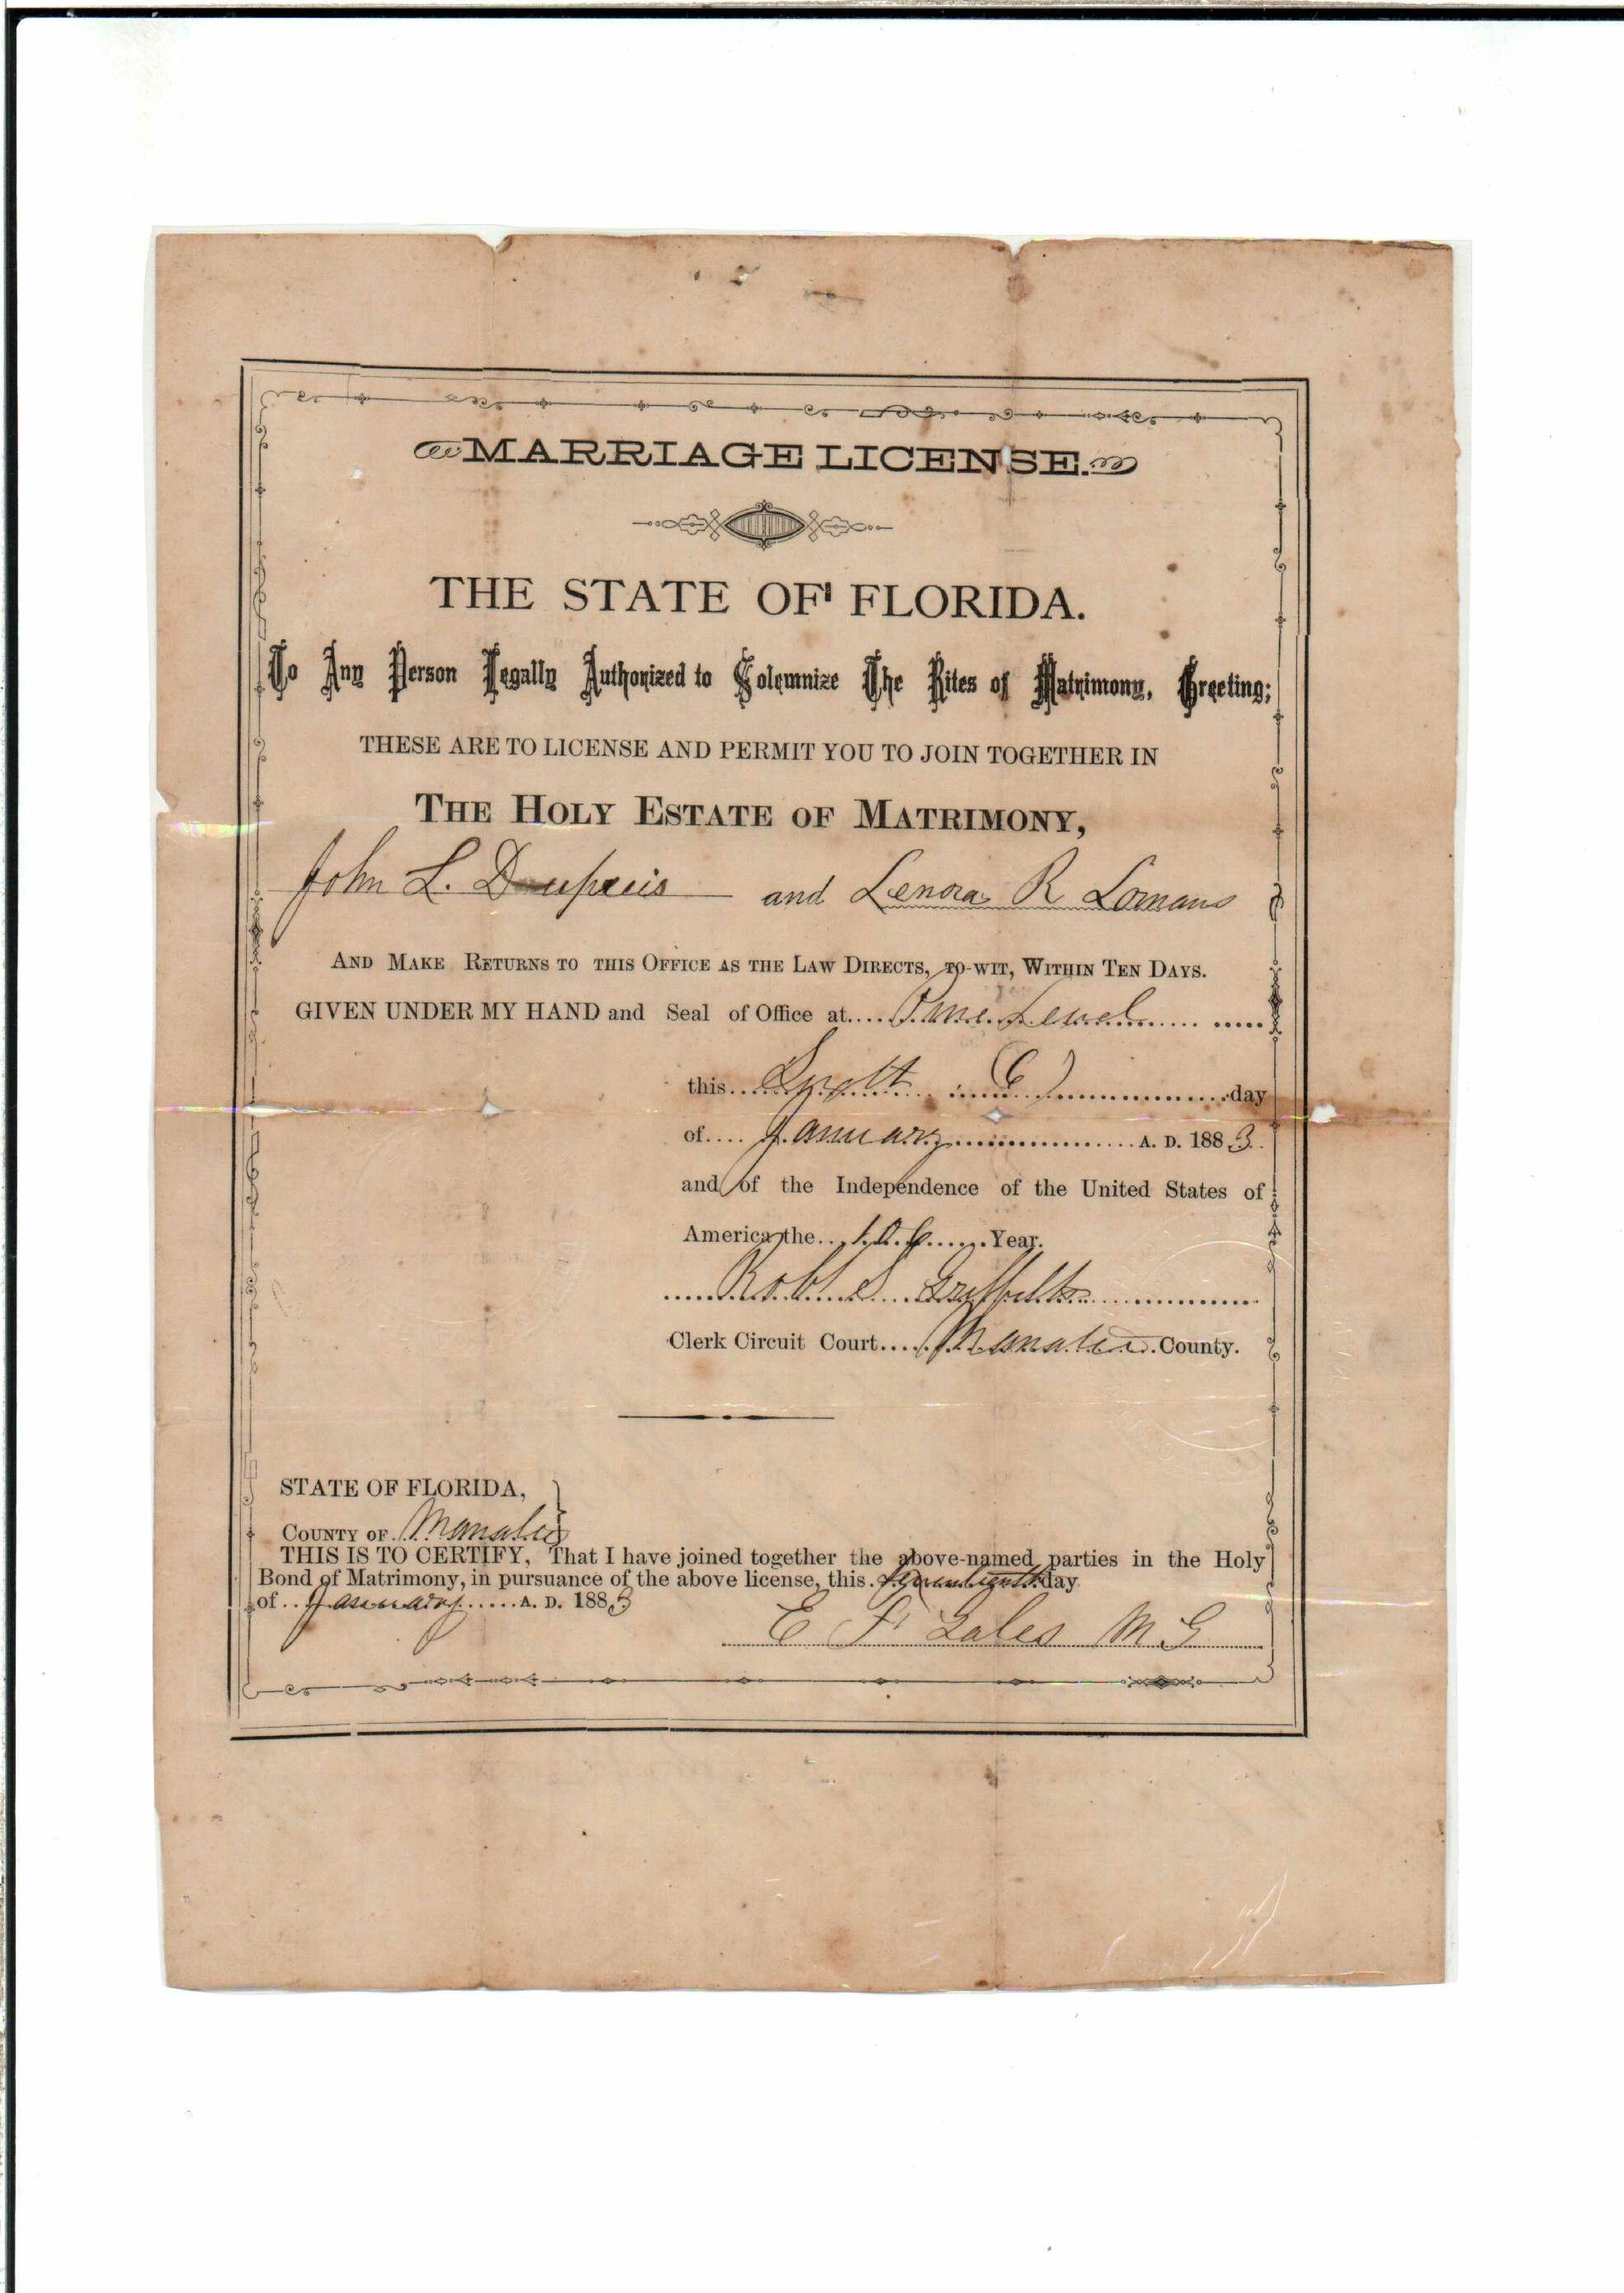 MARRIAGE LICENSE.
THE STATE OF FLORIDA.
To Any Person Legally Authorized to Solemnize The Rites of Matrimony, Greeting;
THESE ARE TO LICENSE AND PERMIT YOU TO JOIN TOGETHER IN
THE HOLY ESTATE OF MATRIMONY,
John L. and Lenora R Lomans
AND MAKE RETURNS TO THIS OFFICE AS THE LAW DIRECTS, TO-WIT, WITHIN TEN DAYS.
GIVEN UNDER MY HAND and Seal of Office at.... Pine Level
this.... (6) day
of.... January A. D. 1883.
and of the Independence of the United States of
America the.. Year.
Robt S. Griffith
Clerk Circuit Court.... Manatee County.
STATE OF FLORIDA, }
COUNTY OF Manatee
THIS IS TO CERTIFY, That I have joined together the above-named parties in the Holy
Bond of Matrimony, in pursuance of the above license, this. day
of.. January A. D. 1883
E F Gates M. G